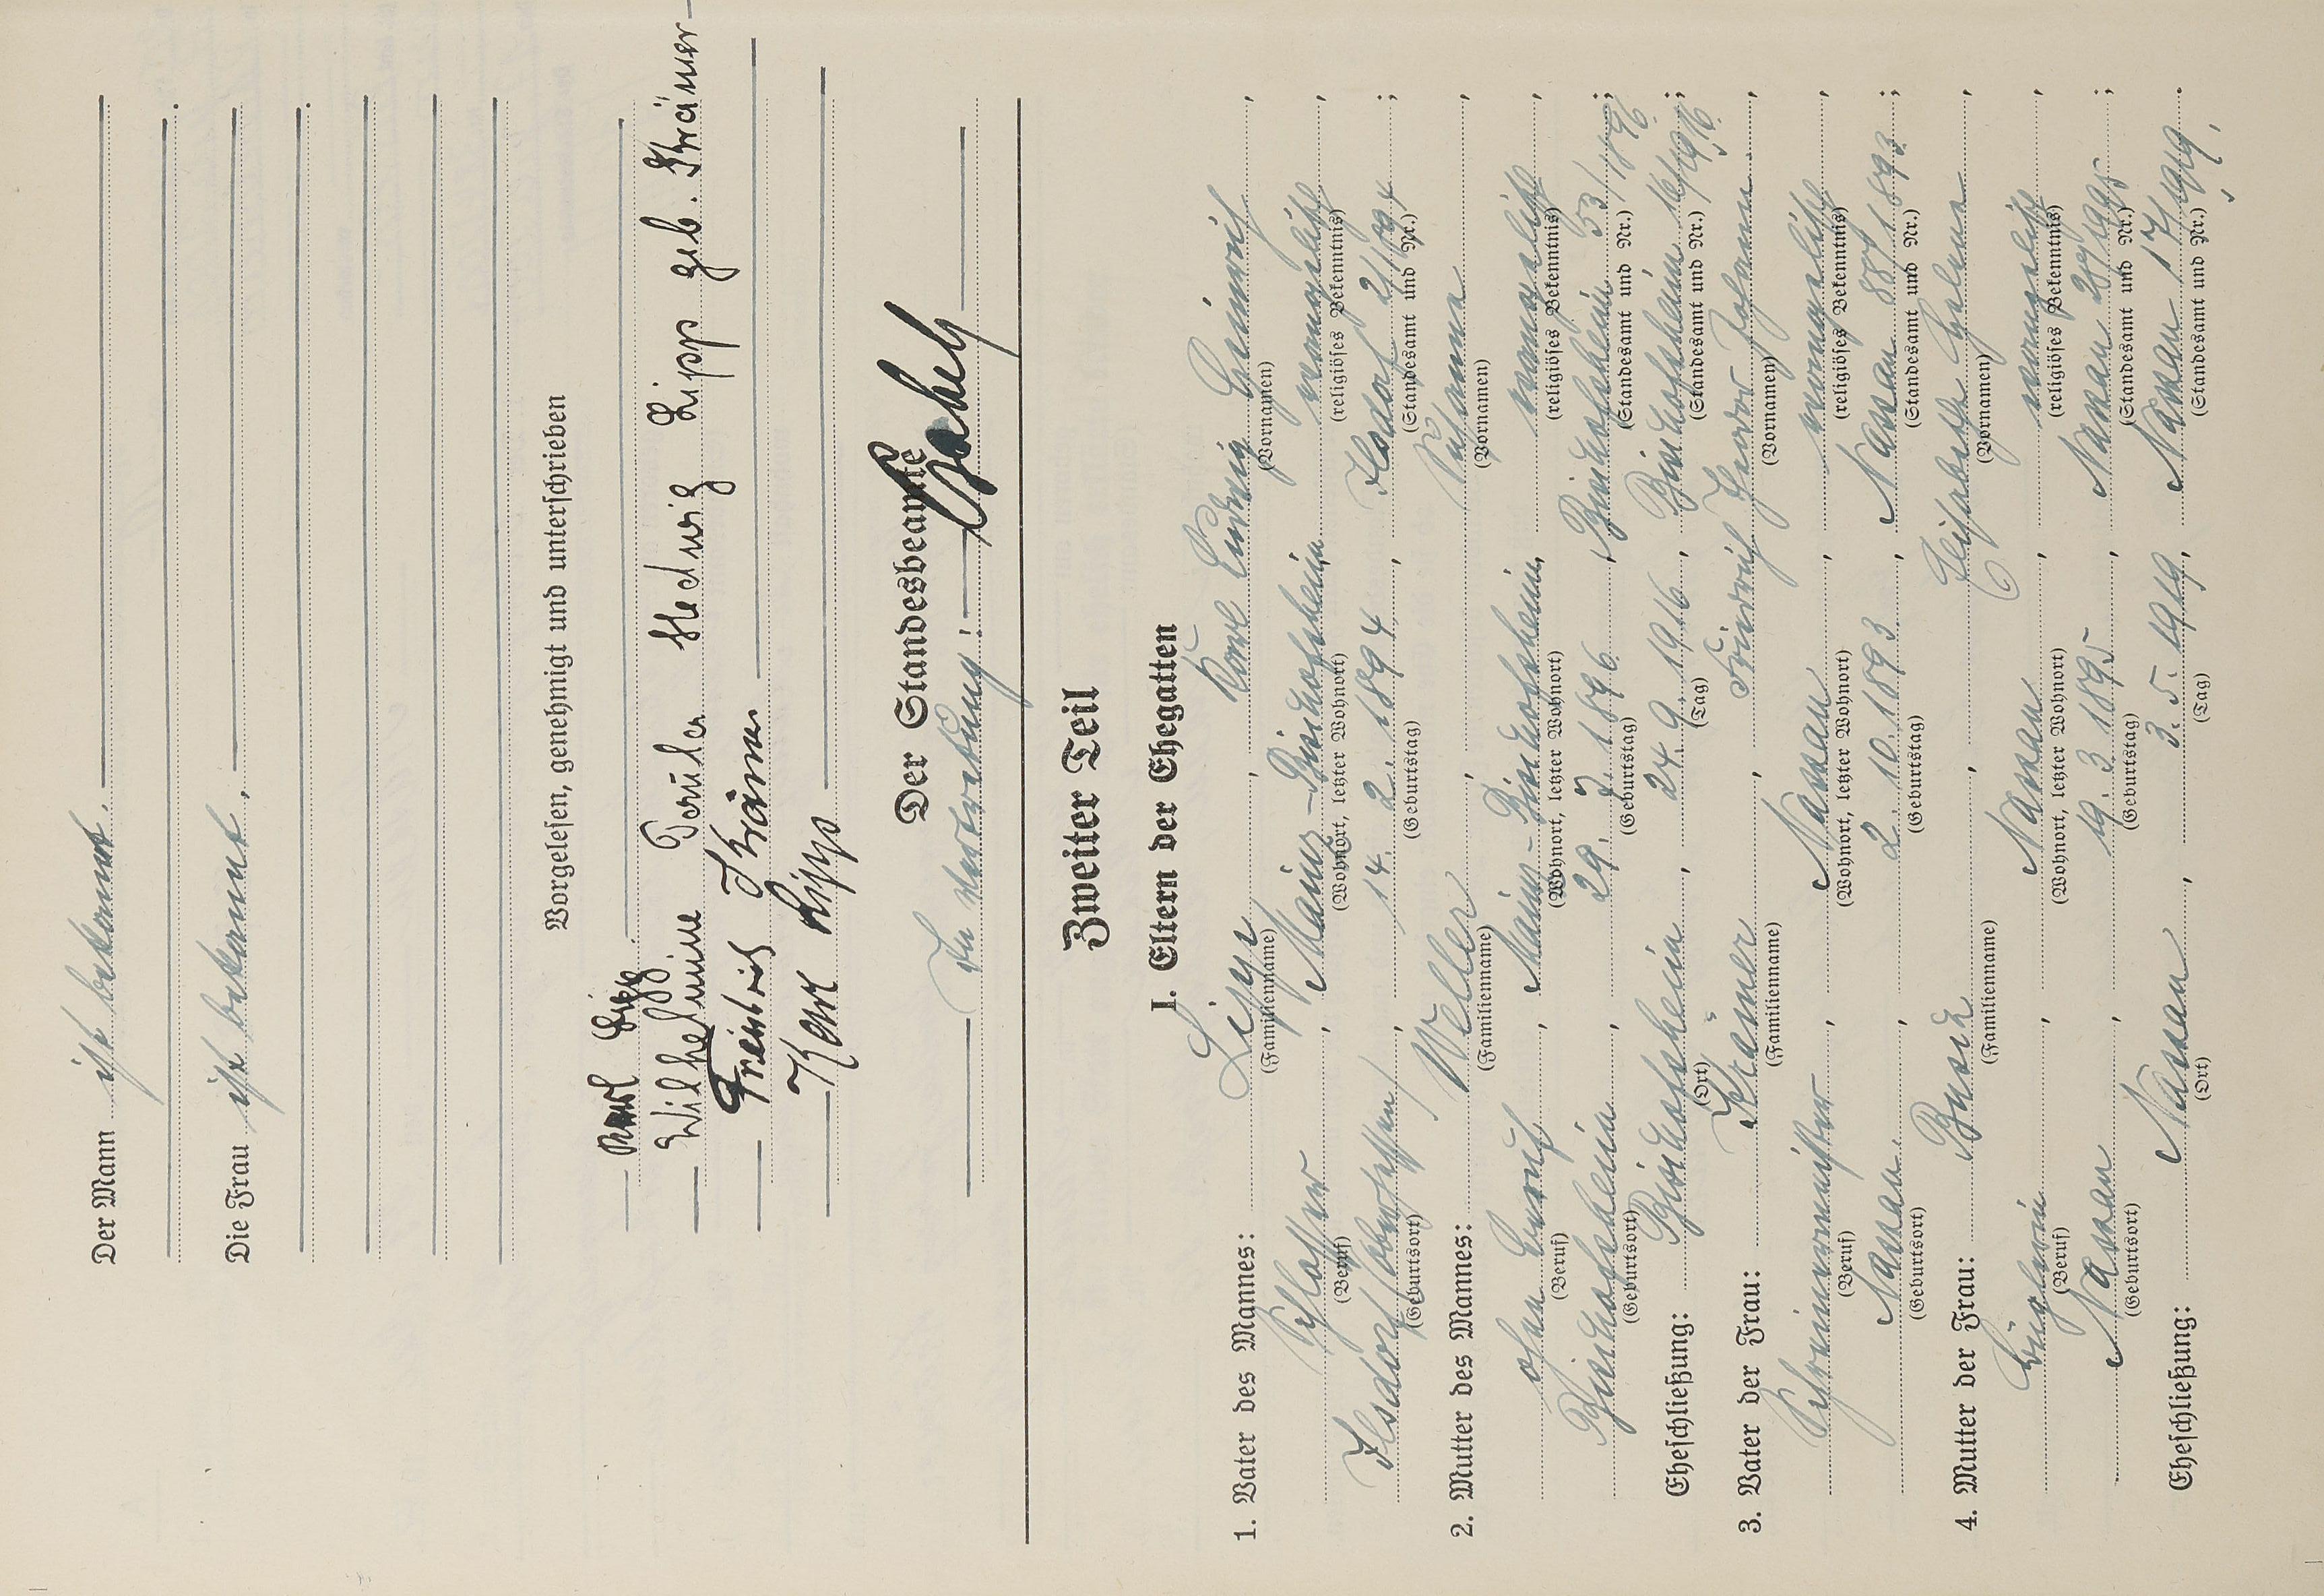 Der Mann ist bekannt.
Die Frau ist bekannt.
Vorgelesen, genehmigt und unterschrieben
Karl Lipp.
Wilhelmine Paula Hedwig Lipp geb. Krämer
Friedrich Krämer
Karl Lipp
Der Standesbeamte
In Vertretung:
Zweiter Teil
I. Eltern der Ehegatten
1. Vater des Mannes: Lipp, Karl Ludwig Heinrich,
(Familienname) (Vornamen)
Schlosser, Mainz-Bischofsheim, evangelisch,
(Beruf) (Wohnort, letzter Wohnort) (religiöses Bekenntnis)
Ilsdorf, 14. 2. 1894, Ilsdorf 2/1894;
(Geburtsort) (Geburtstag) (Standesamt und Nr.)
2. Mutter des Mannes: Weller, Susanna,
(Familienname) (Vornamen)
ohne Beruf, Mainz-Bischofsheim, evangelisch,
(Beruf) (Wohnort, letzter Wohnort) (religiöses Bekenntnis)
Bischofsheim, 29. 7. 1896, Bischofsheim 53/1896;
(Geburtsort) (Geburtstag) (Standesamt und Nr.)
Eheschließung: Bischofsheim, 24. 9. 1916, Bischofsheim 16/1916;
(Ort) (Tag) (Standesamt und Nr.)
3. Vater der Frau: Krämer, Friedrich Johann,
(Familienname) (Vornamen)
Schreinermeister, Nassau, evangelisch,
(Beruf) (Wohnort, letzter Wohnort) (religiöses Bekenntnis)
Nassau, 2. 10. 1893, Nassau 88/1893;
(Geburtsort) (Geburtstag) (Standesamt und Nr.)
4. Mutter der Frau: Busch, Elisabeth Helene,
(Familienname) (Vornamen)
Nassau, evangelisch,
(Beruf) (Wohnort, letzter Wohnort) (religiöses Bekenntnis)
Nassau, 19. 3. 1895, Nassau
(Geburtsort) (Geburtstag) (Standesamt und Nr.)
Eheschließung: Nassau, 3. 5. 1919, Nassau 17/1919.
(Ort) (Tag) (Standesamt und Nr.)